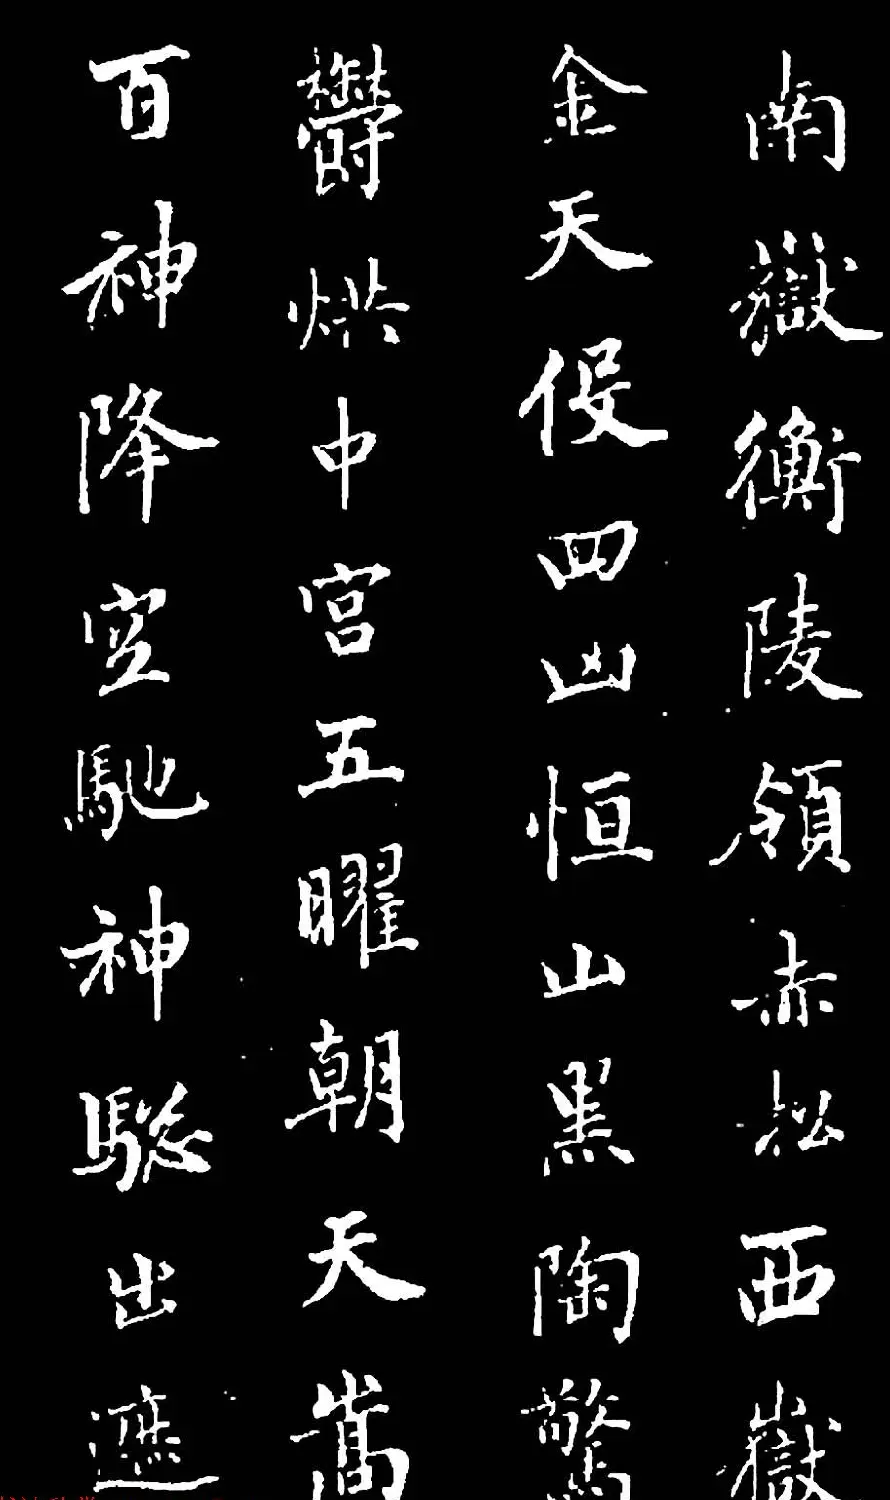 南嶽衡陵領赤松西嶽
金天伇四凶恒山黑陶驚
欝烘中宮五曜朝天嵩
百神降空馳神驄出遮